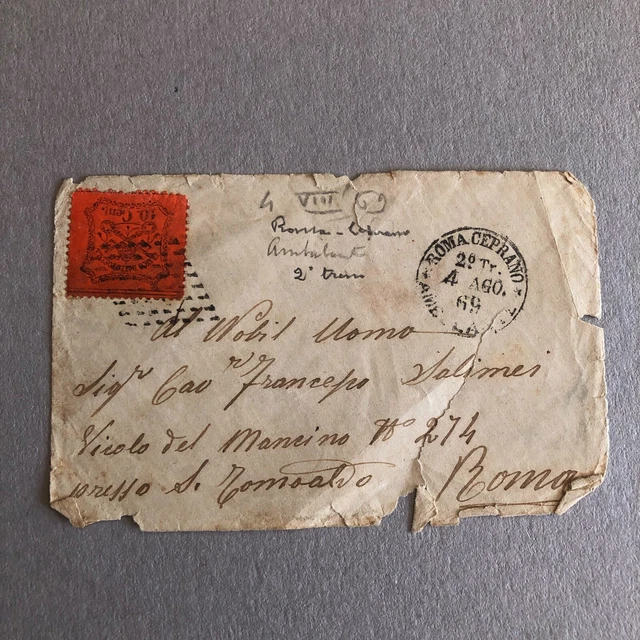 10 Cent.
4 VIII 69
Roma - Ceprano
Ambulante
2° treno
ROMA. CEPRANO
2° Tr.
4 AGO.
69
Al Nobil Uomo
Sigr Cavr Francesco Salimei
Vicolo del Mancino No 274
presso S. Romoaldo Roma